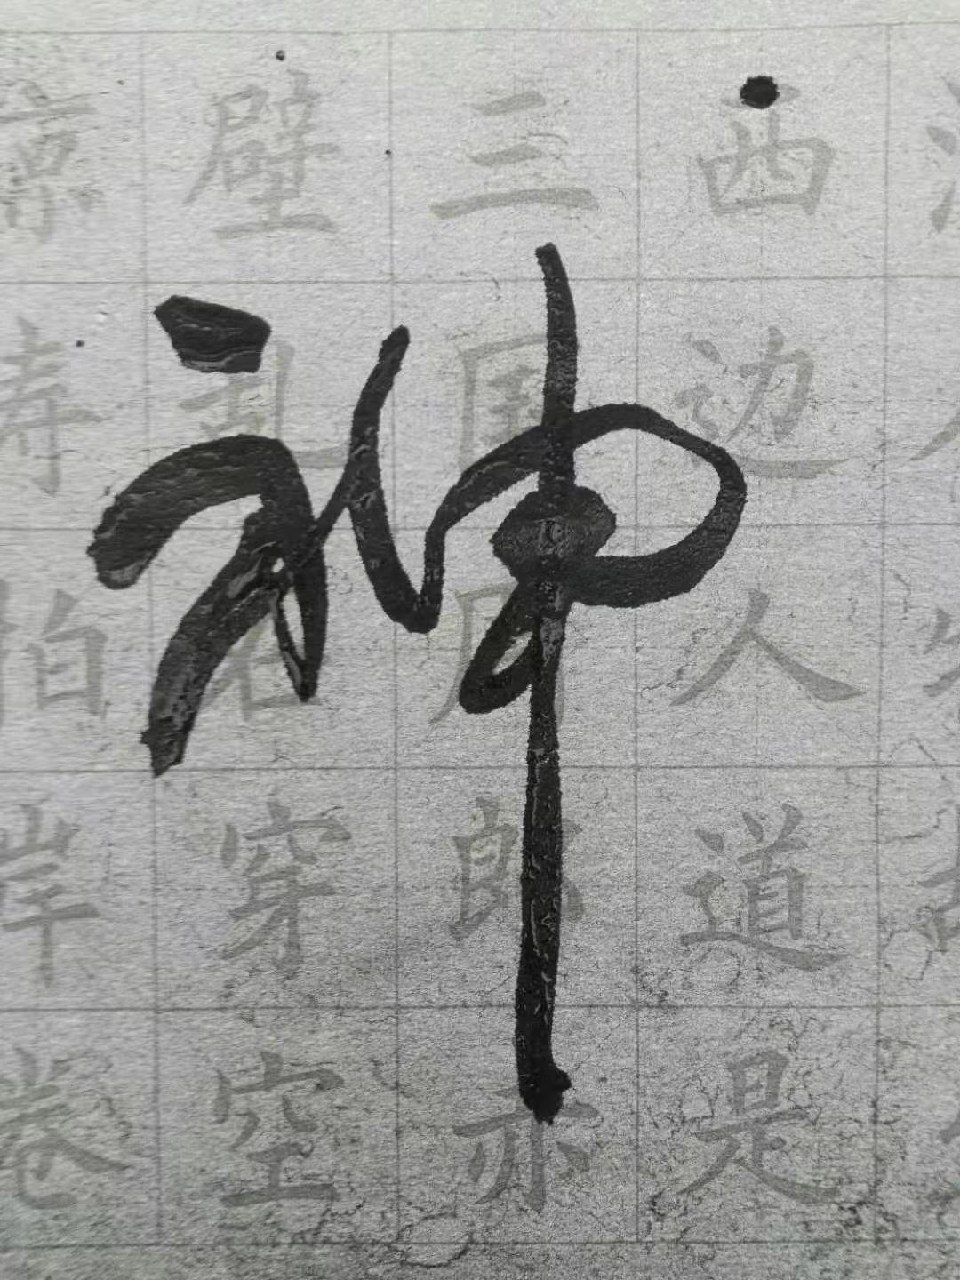 神
西边人道是
三国周郎赤
壁乱石穿空
惊涛拍岸卷